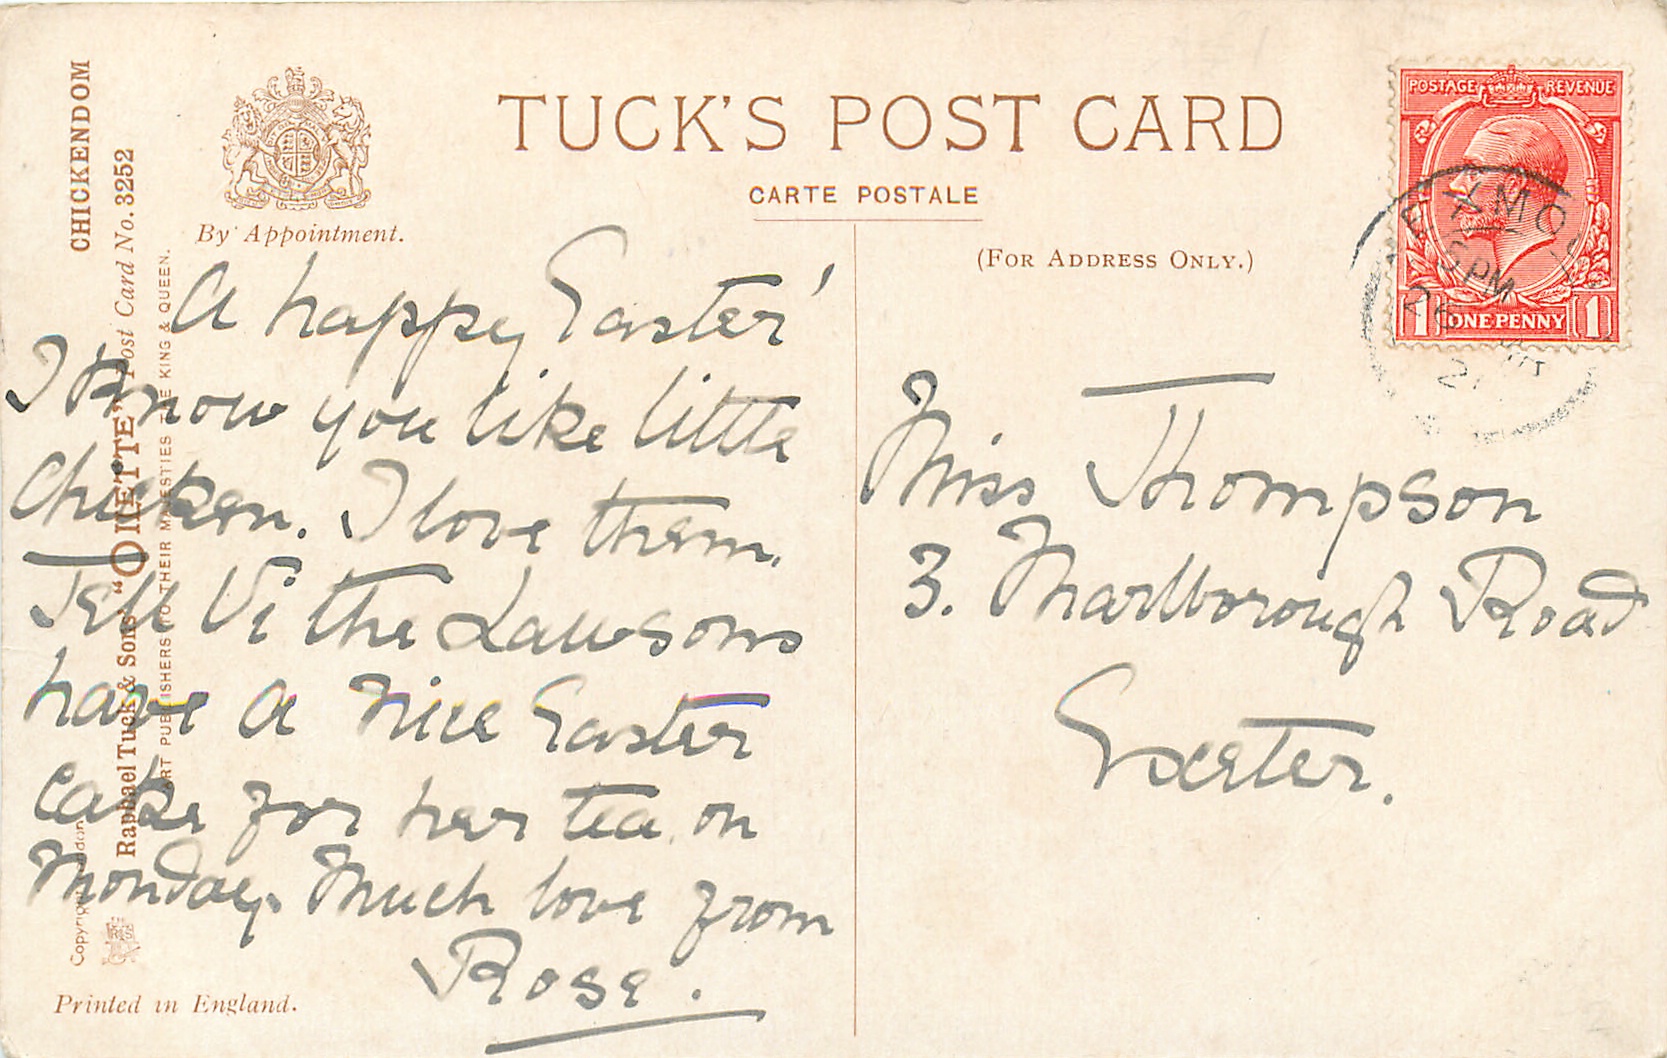 CHICKENDOM
Raphael Tuck & Sons' "OILETTE" Post Card No. 3252
ART PUBLISHERS TO THEIR MAJESTIES THE KING & QUEEN.
Copyright London
By Appointment.
TUCK'S POST CARD
CARTE POSTALE
(FOR ADDRESS ONLY.)
POSTAGE REVENUE
1 ONE PENNY 1
EXMOU
PM
A happy Easter!
I know you like little
Chicken. I love them.
Tell Vi the Lawsons
have a nice Easter
Cake for her tea on
Monday. Much love from
Rose.
Miss Thompson
3. Marlborough Road
Exeter.
Printed in England.